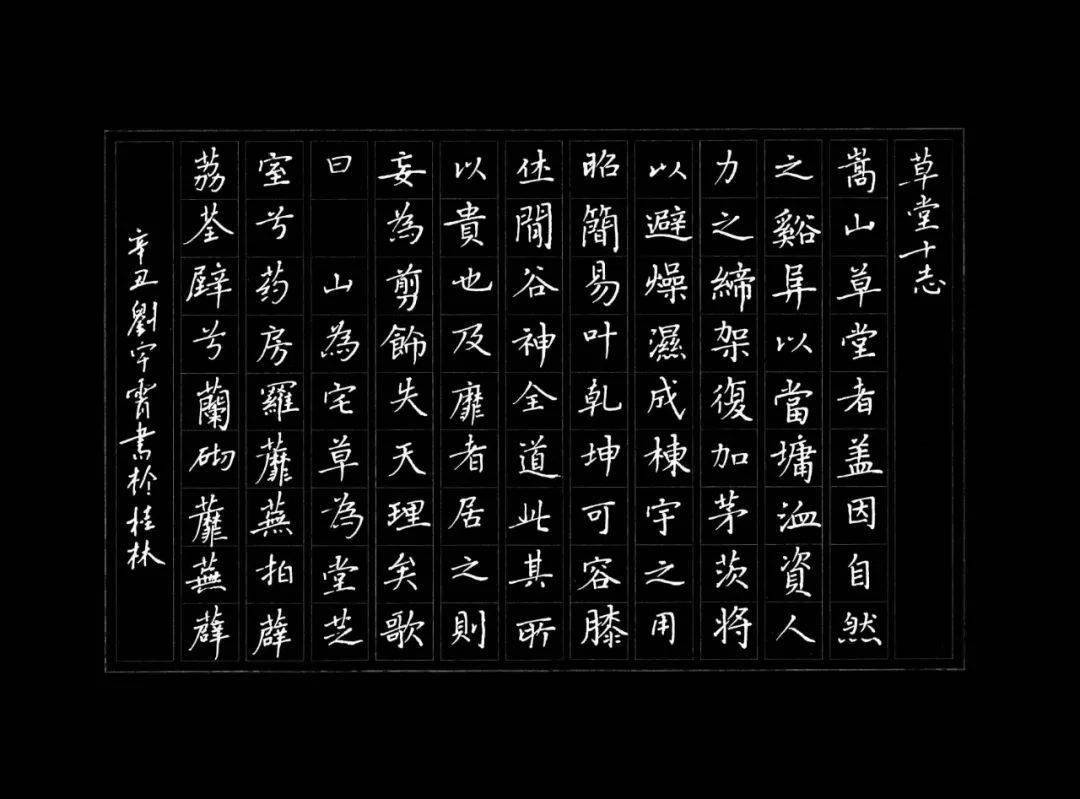 草堂十志
嵩山草堂者盖因自然
之谿阜以當墉洫資人
力之締架復加茅茨將
以避燥濕成棟宇之用
昭簡易叶乾坤可容膝
休閒谷神全道此其所
以貴也及靡者居之則
妄為剪飾失天理矣歌
曰 山為宅草為堂芝
室兮药房羅蘼蕪拍薜
荔荃壁兮蘭砌蘼蕪薜
辛丑劉宇霄書於桂林